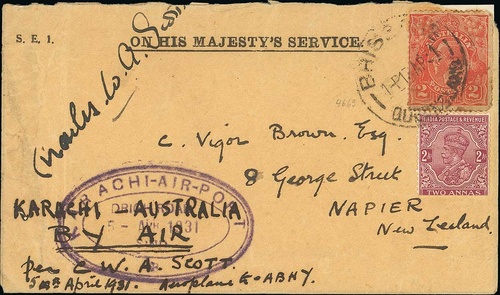 S. E. 1.
ON HIS MAJESTY'S SERVICE.
Charles W. A. Scott
AUSTRALIA
2 2
BRISBANE
QUEENSLAND
4685
INDIA POSTAGE & REVENUE
2 As
TWO ANNAS
C. Vigor Brown, Esq.
8 George Street
NAPIER
New Zealand.
KARACHI-AIR-PORT
5 - APR 1931
KARACHI - AUSTRALIA
BY AIR
per C. W. A. SCOTT.
5th April 1931. Aeroplane G-ABHY.